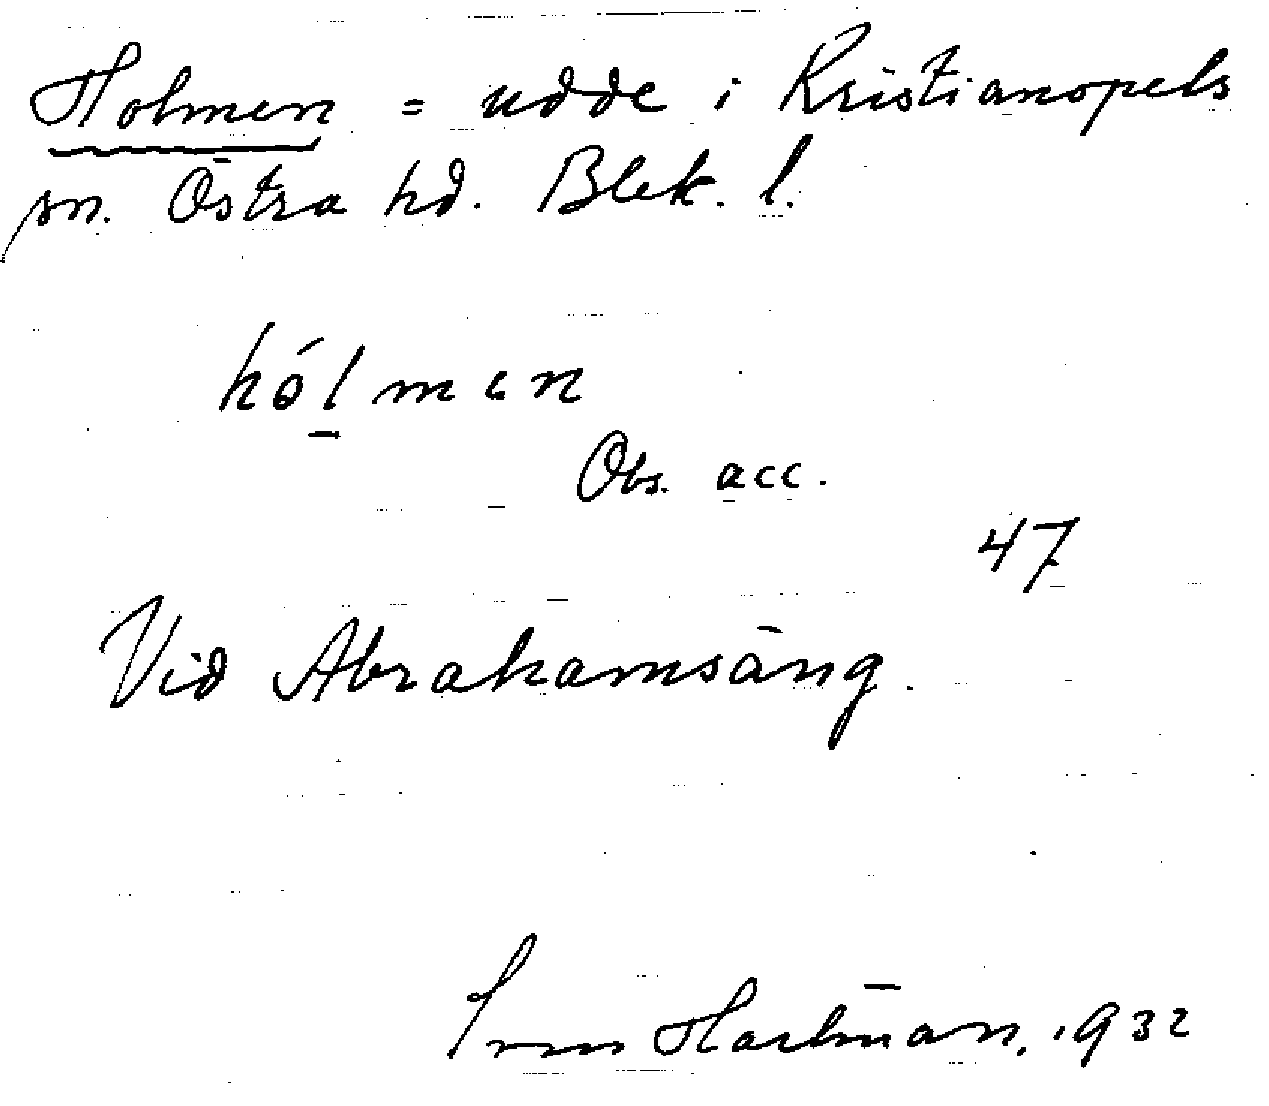 Holmen = udde i Kristianopels
sn. Östra hd. Blek. l.
hó̱lmɛn
Obs. acc.
47
Vid Abrahamsäng.
Hartman. 1932